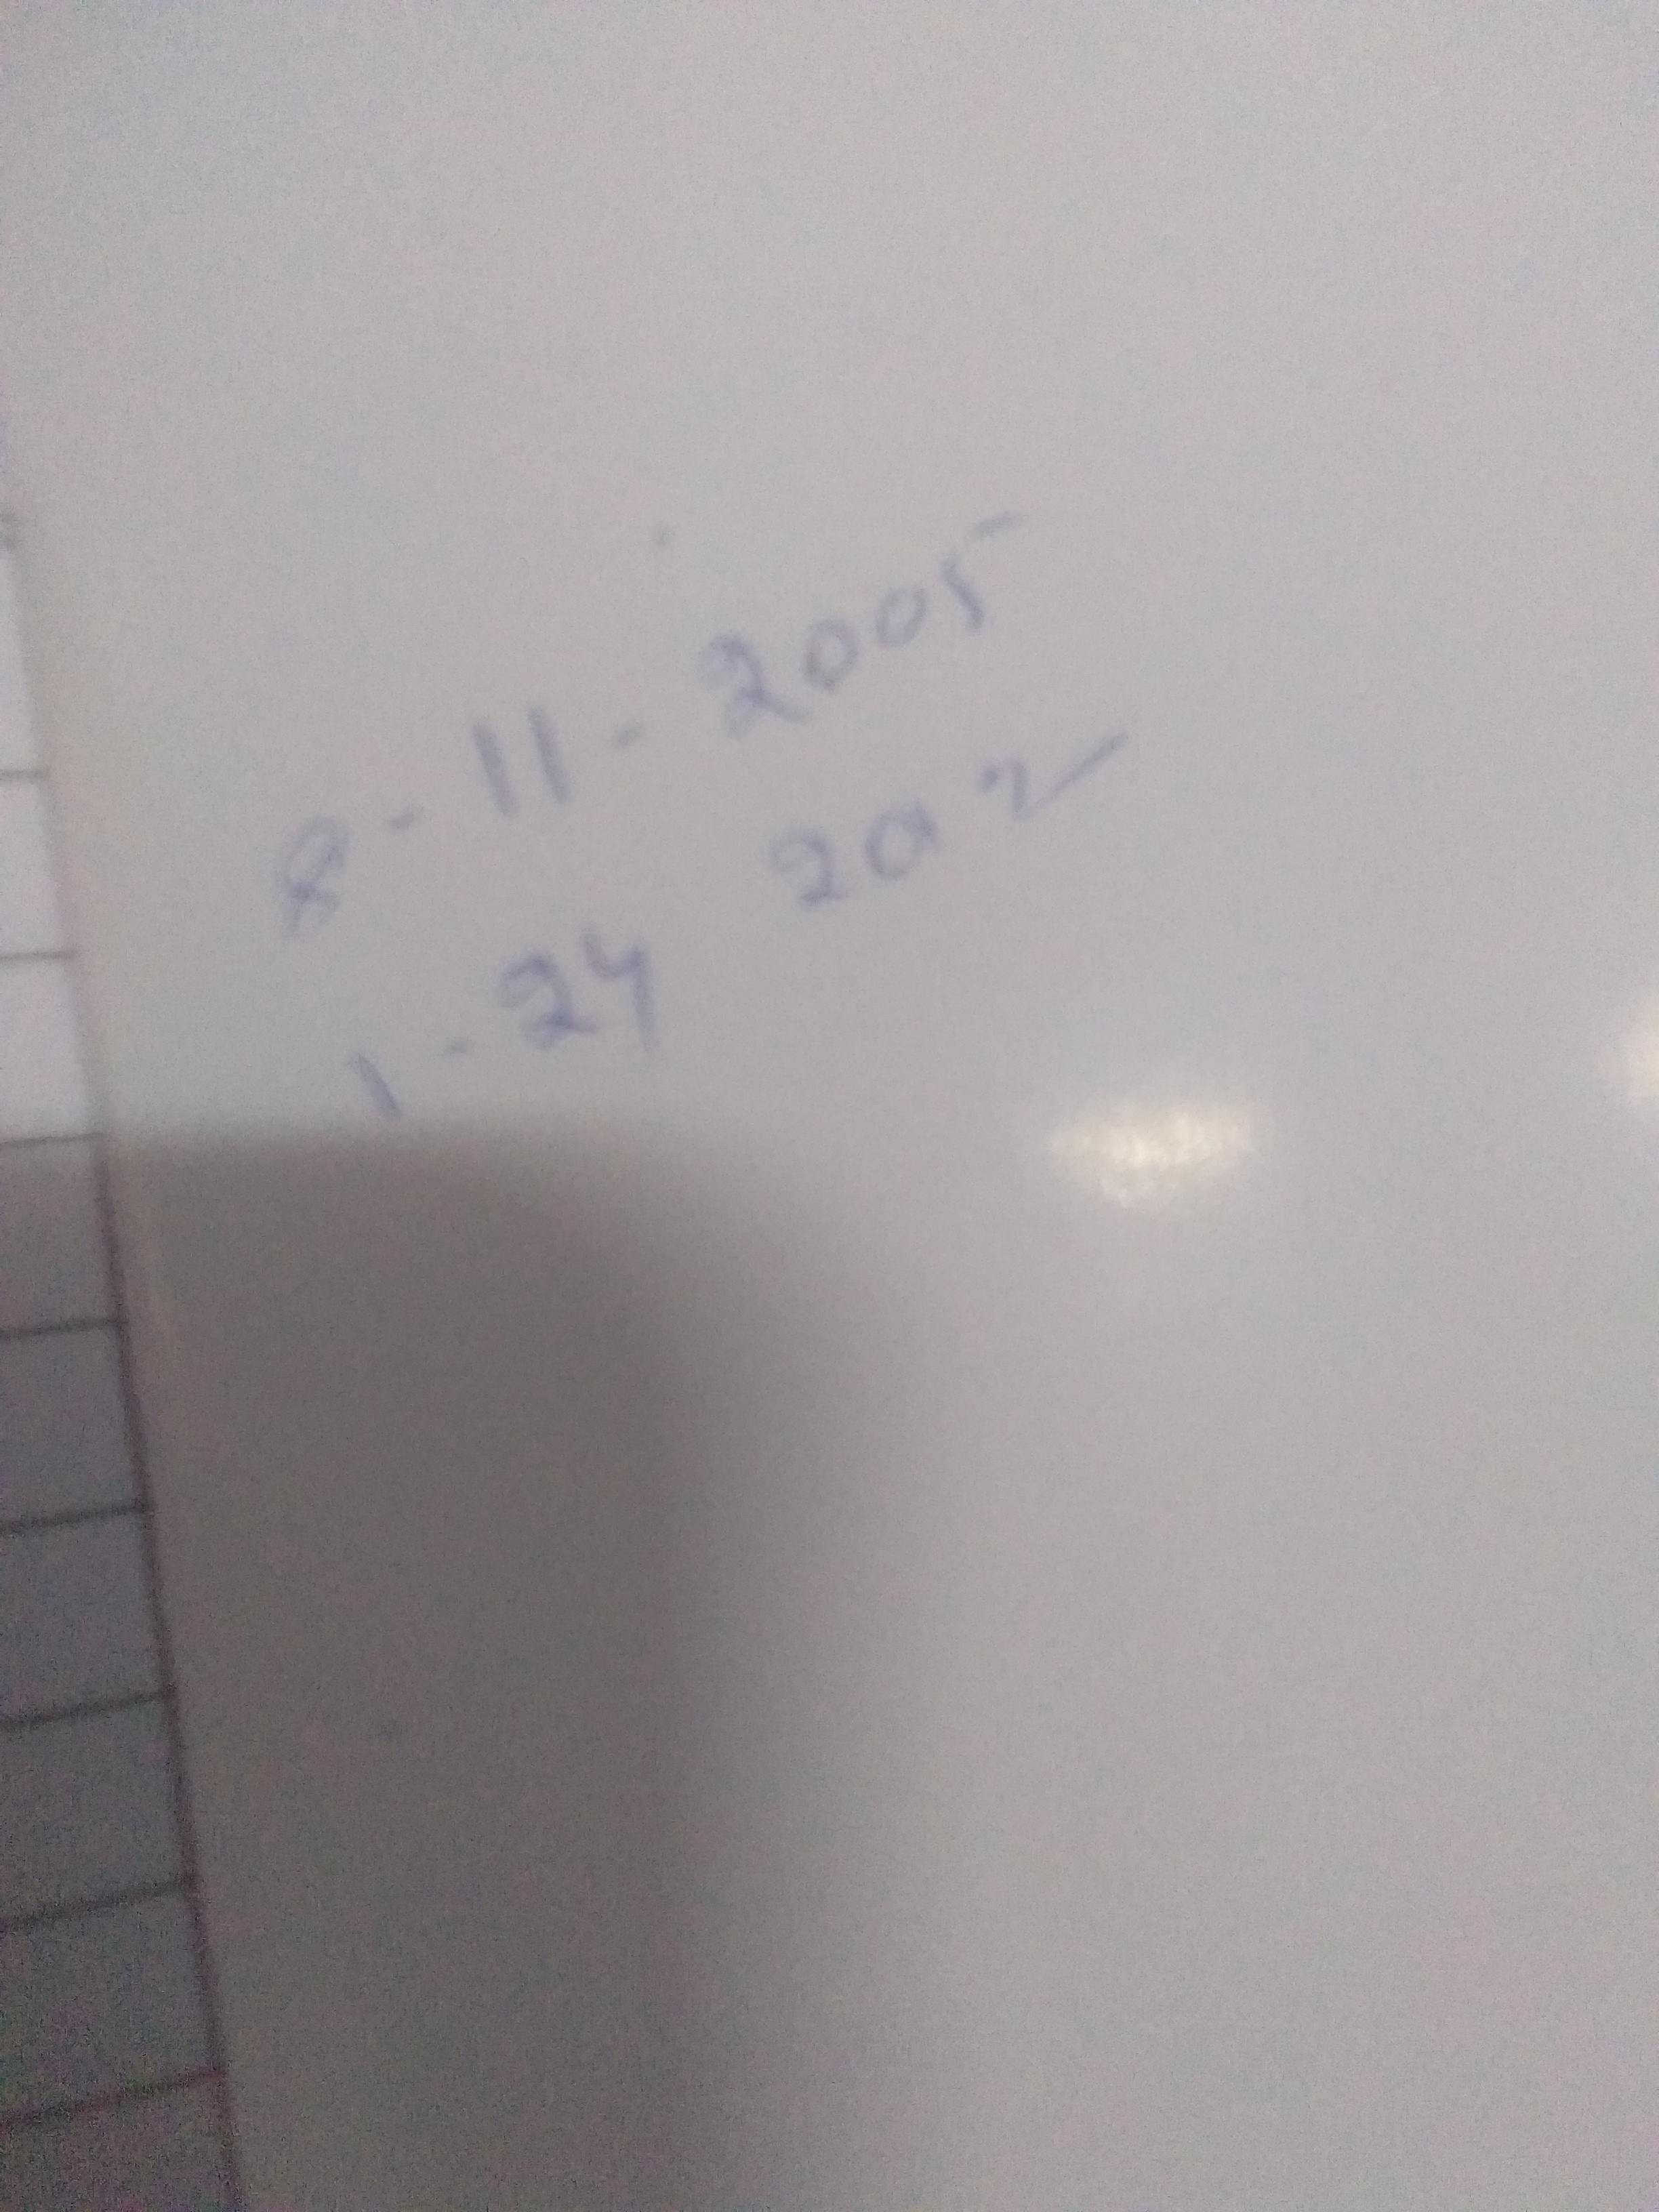 8-11-2005
1-24 202